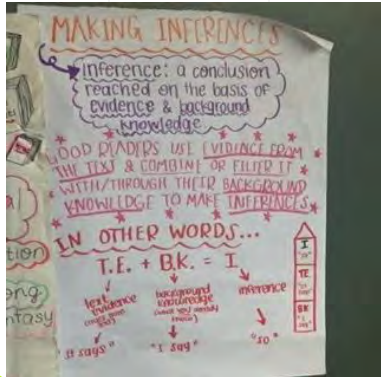 MAKING INFERENCES
inference: a conclusion
reached on the basis of
evidence & background
knowledge
GOOD READERS USE EVIDENCE FROM
THE TEXT & COMBINE OR FILTER IT
WITH/THROUGH THEIR BACKGROUND
KNOWLEDGE TO MAKE INFERENCES.
IN OTHER WORDS...
T.E. + B.K. = I
text
evidence
background
knowledge
(what you already
know)
inference
"it says"
"I say"
"so"
I
"so"
TE
"it
says"
BK
"I
say"
tion
ong
ntasy